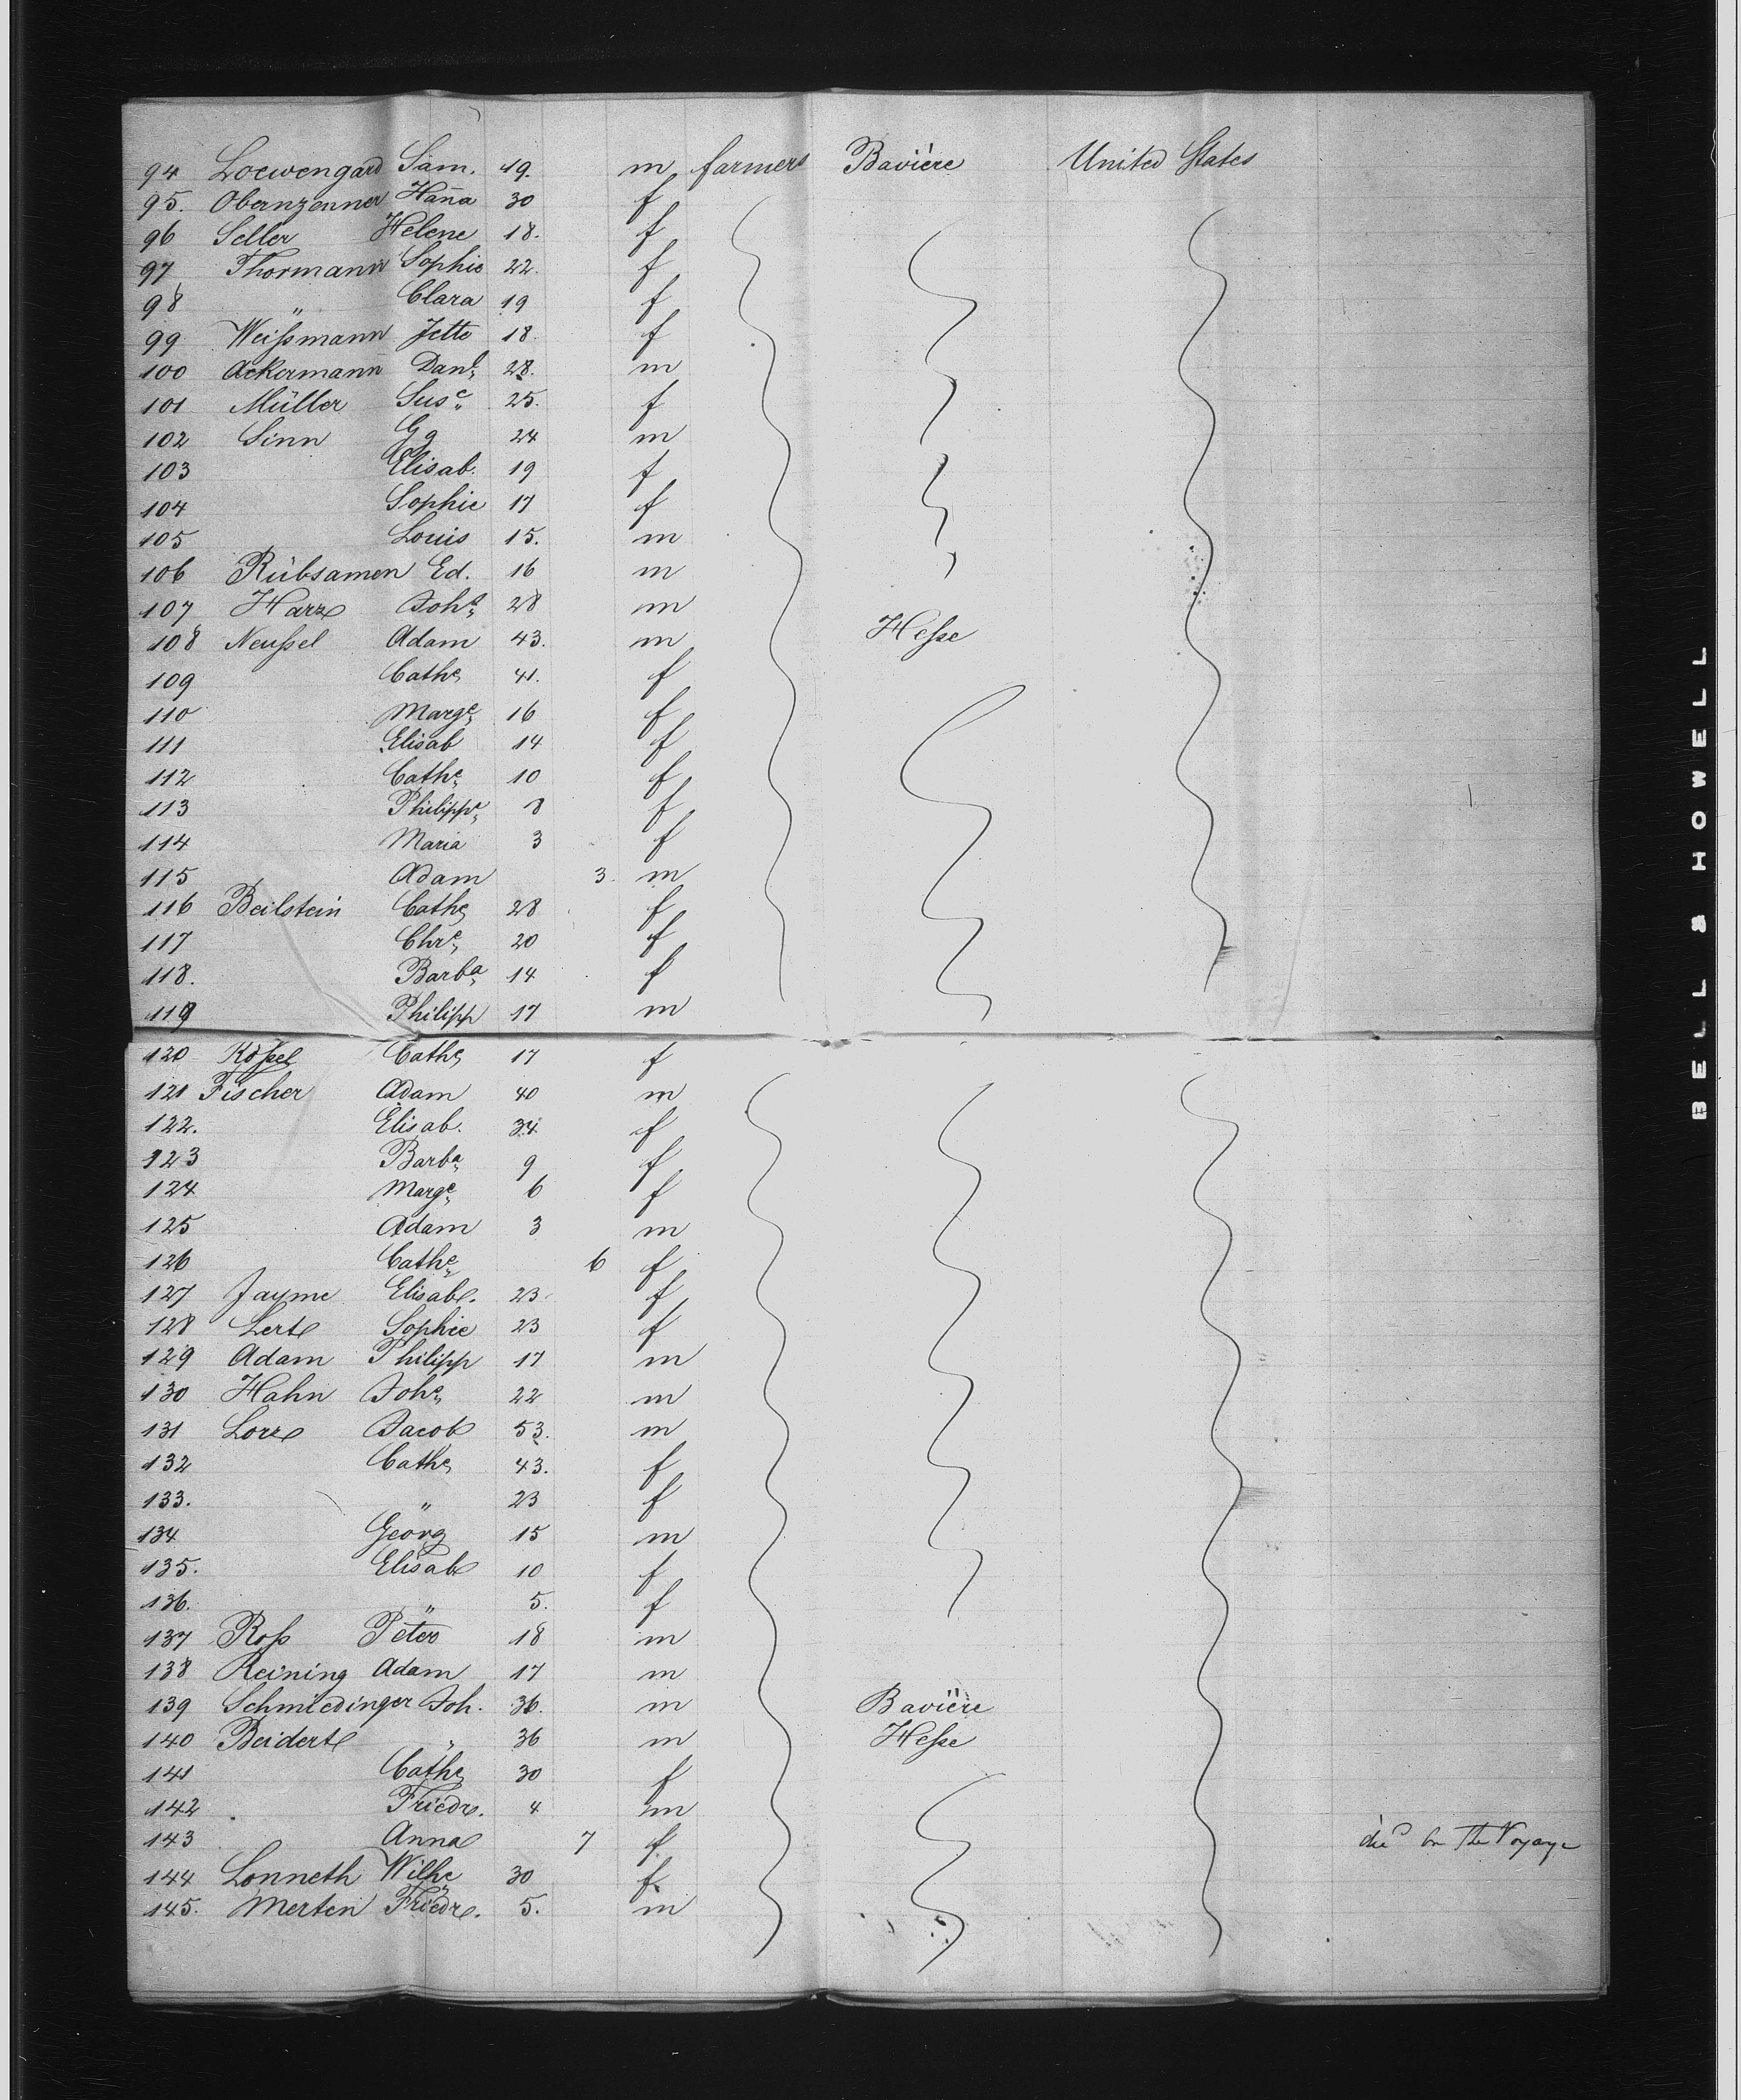 94 Loewengard Sam. 19. m farmers Bavière United States
95. Obernzenner Hana 30 f
96 Seller Helene 18. f
97 Thormann Sophie 22. f
98 " Clara 19 f
99 Weißmann Jette 18. f
100 Ackermann Danl. 28. m
101 Müller Susc. 25. f
102 Sinn Gg 24 m
103 Elisab. 19 f
104 Sophie 17 f
105 Louis 15. m
106 Rübsamen Ed. 16 m
107 Harz Johs. 28 m
108 Neußel Adam 43. m Heße
109 Cathe 41. f
110 Marge. 16 f
111 Elisab 14 f
112 Cathe. 10 f
113 Philippe. 8 f
114 Maria 3 f
115 Adam 3 m
116 Beilstein Cathe 28 f
117 Chre. 20 f
118. Barba. 14 f
119 Philipp 17 m
120 Cathe 17 f
121 Fischer Adam 40 m
122. Elisab. 34 f
123 Barba. 9 f
124 Marge. 6 f
125 Adam 3 m
126 Cathe. 6 f
127 Jayme Elisab. 23 f
128 Sophie 23 f
129 Adam Philipp 17 m
130 Hahn Johs. 22 m
131 Lorz Jacob 53. m
132 Cathe 43. f
133. " 23 f
134 Georg 15 m
135. Elisab 10 f
136. " 5. f
137 Roß Peter 18 m
138 Reining Adam 17 m
139 Schmiedinger Joh. 36. m Bavière
140 Beidert " 36 m Heße
141 Cathe 30 f
142 Friedr. 4 m
143 Anna 7 f died on the Voyage
144 Lonneth Wilhe 30 f
145. Merten Friedr. 5. m
BELL & HOWELL